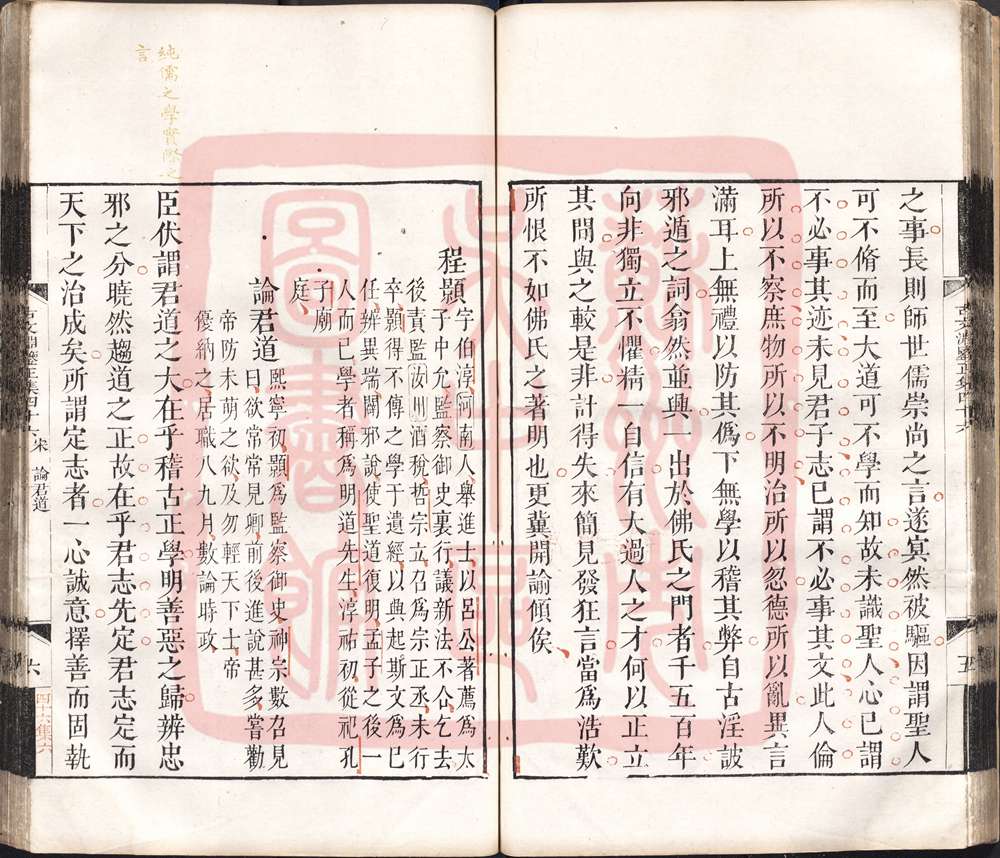 之事長則師世儒崇尚之言遂冥然被驅因謂聖人
可不脩而至大道可不學而知故未識聖人心已謂
不必事其迹未見君子志已謂不必事其文此人倫
所以不察庶物所以不明治所以忽德所以亂異言
滿耳上無禮以防其僞下無學以稽其弊自古淫詖
邪遁之詞翕然並興一出於佛氏之門者千五百年
向非獨立不懼精一自信有大過人之才何以正立
其間與之較是非計得失來簡見發狂言當爲浩歎
所恨不如佛氏之著明也更冀開諭傾俟
五
程顥字伯淳河南人舉進士以呂公著薦爲太
子中允監察御史裏行議新法不合乞去
後責監汝州酒稅哲宗立召爲宗正丞未行
卒顥得不傳之學于遺經以興起斯文爲已
任辨異端闢邪說使聖道復明孟子之後一
人而已學者稱爲明道先生淳祐初從祀孔
子廟
庭
論君道熙寧初顥爲監察御史神宗數召見
曰欲常常見卿前後進說甚多嘗勸
帝防未萌之欲及勿輕天下士帝
優納之居職八九月數論時政
臣伏謂君道之大在乎稽古正學明善惡之歸辨忠
邪之分曉然趨道之正故在乎君志先定君志定而
天下之治成矣所謂定志者一心誠意擇善而固執
純儒之學實際之
言
宋 論君道
六